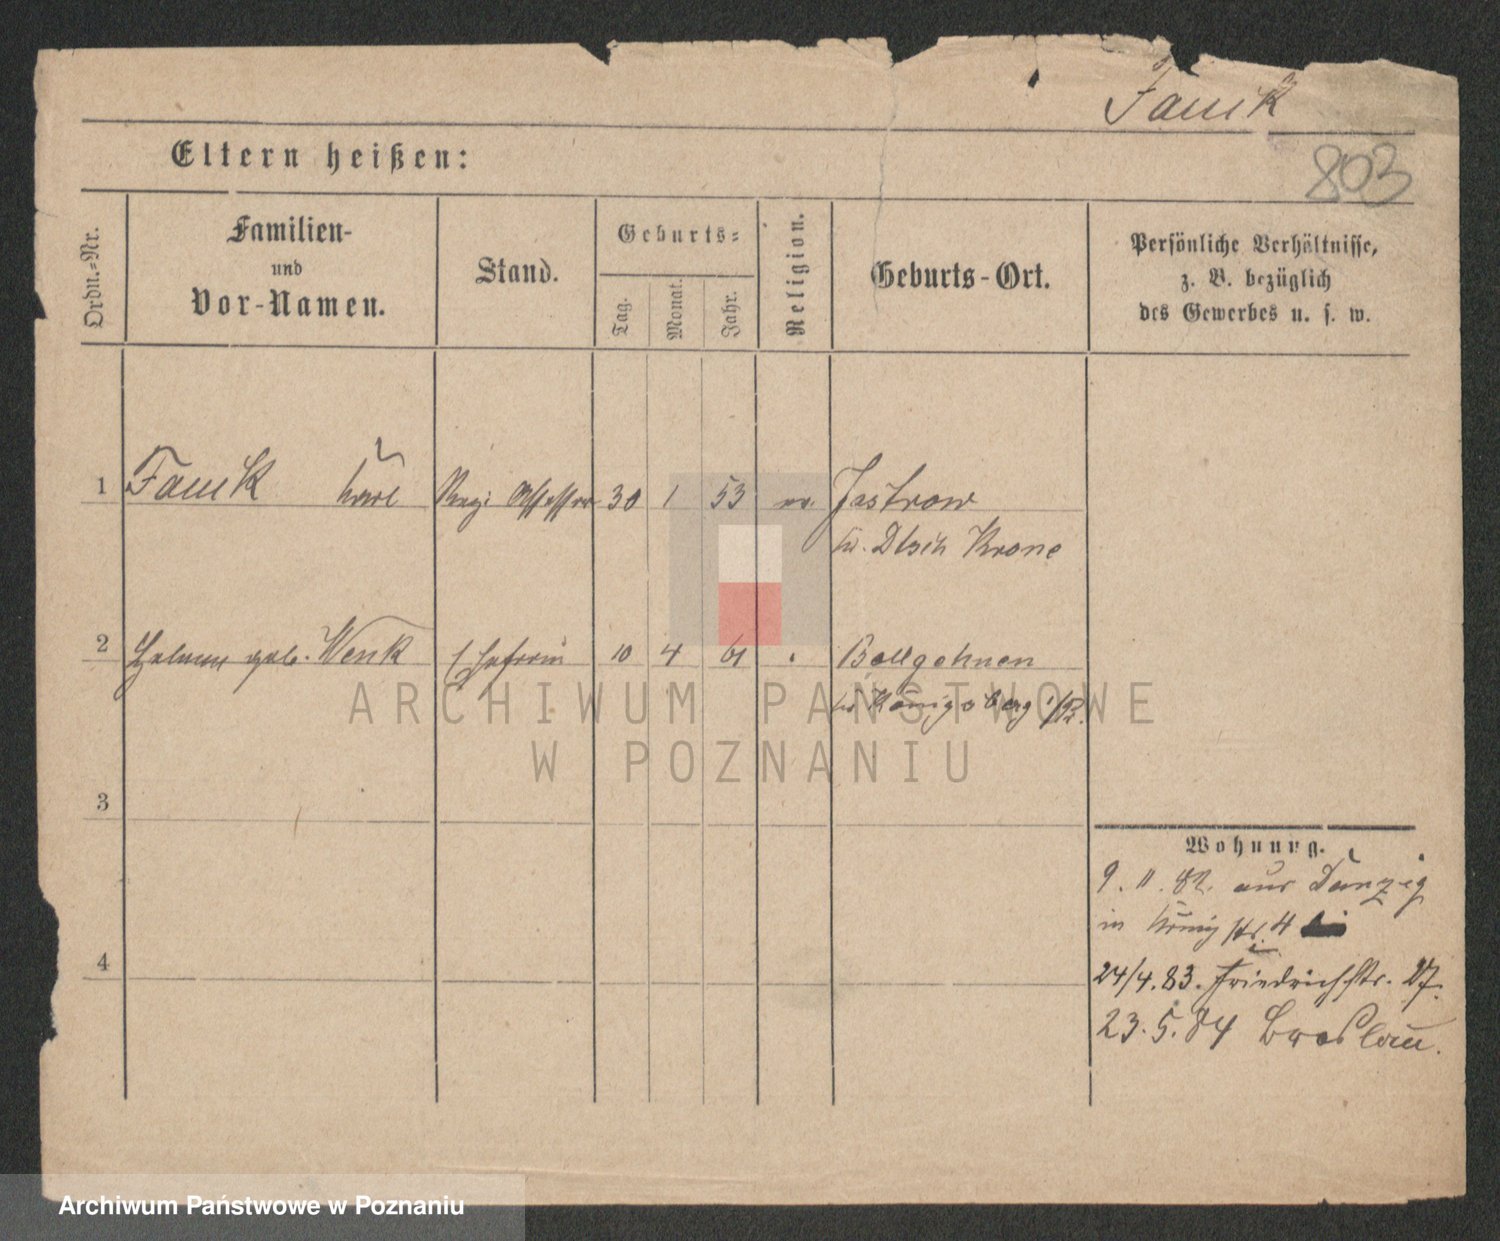 Fauck
803
Eltern heißen:
Ordn.-Nr.
Familien-
und
Vor-Namen.
Stand.
Geburts-
Tag.
Monat.
Jahr.
Religion.
Geburts-Ort.
Persönliche Verhältnisse,
z. B. bezüglich
des Gewerbes u. s. w.
1 Karl Reg: Assessor 30 1 53 ev. Jastrow
Kr. Dtsch Krone
2 geb. Wenk Ehefrau 10 4 61 Bollgehnen
Königsberg i/Pr.
3
4
Wohnung.
9. 11. 82. aus Danzig
in König str. 4
24/4.83. Friedrichstr. 27.
23.5.84 Breslau.
ARCHIWUM PAŃSTWOWE
W POZNANIU
Archiwum Państwowe w Poznaniu